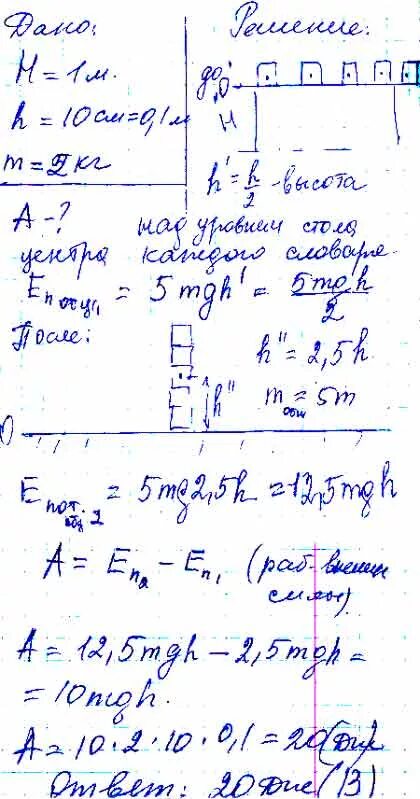 Дано:
Решение:
H = 1 м.
h = 10 см = 0,1 м
m = 2 кг
до
0
H
h' = h/2 - высота
А - ?
над уровнем стола
центра каждого словаря.
= 5 mgh' = 5mgh/2
После:
h'' = 2,5h
h''
m общ = 5m
0
= 5mg2,5h = 12,5mgh
A = Eп₂ - Eп₁ (раб. внешн
силы)
A = 12,5mgh - 2,5mgh =
= 10mgh.
A = 10 · 2 · 10 · 0,1 = 20 (Дж)
Ответ: 20 Дж (13)